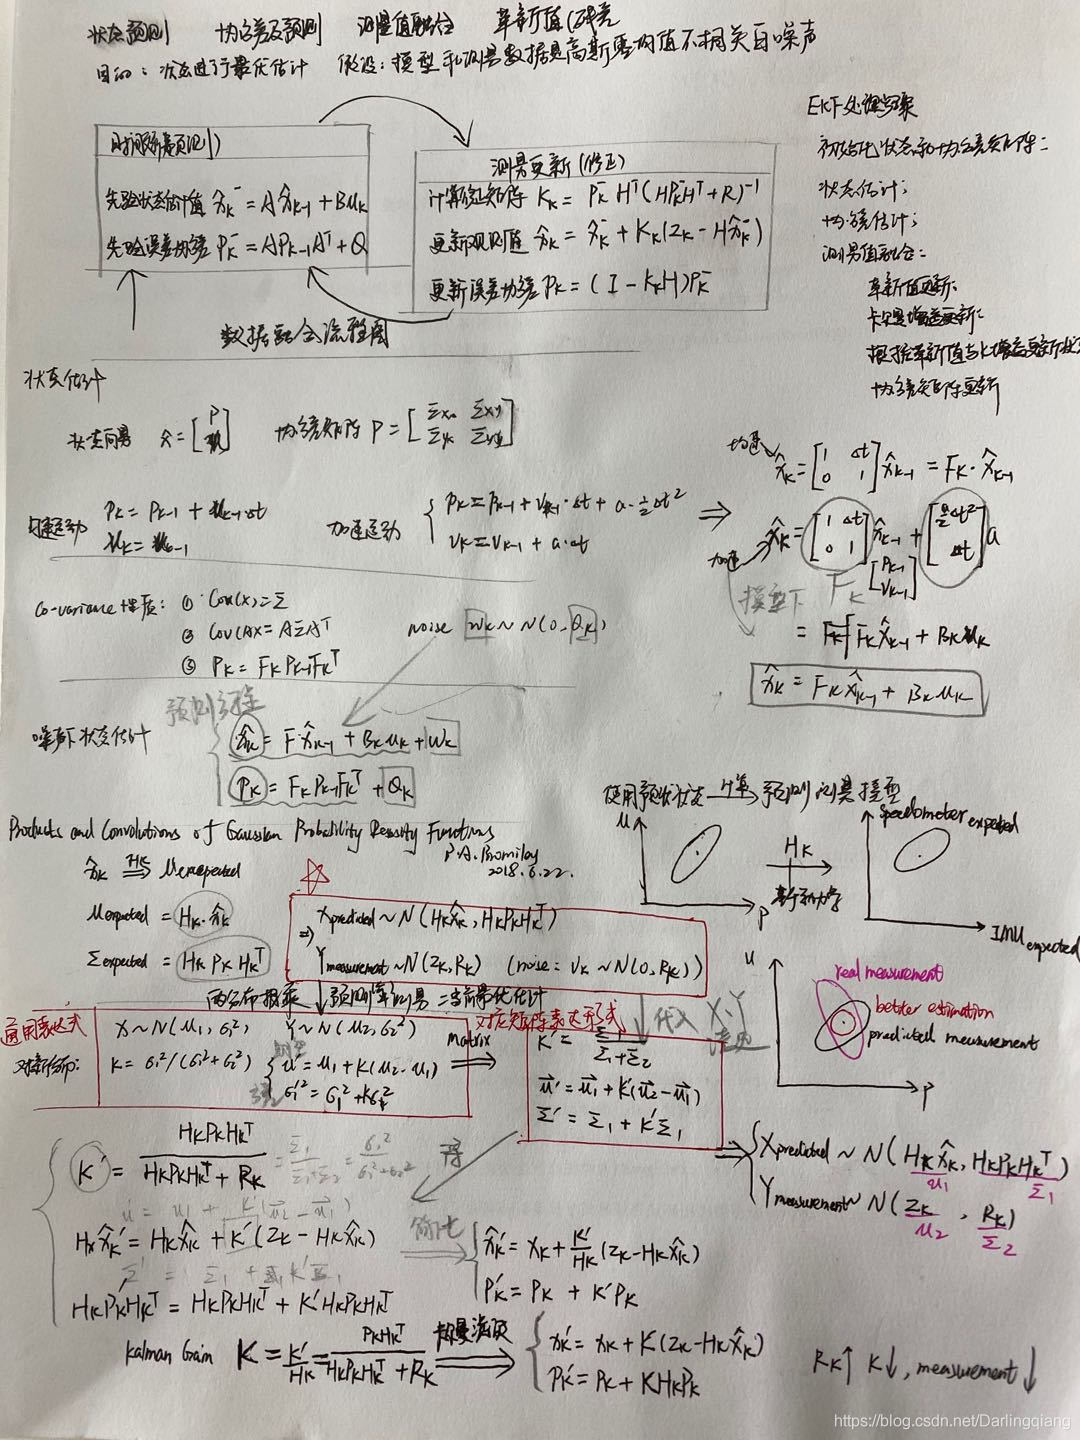 状态预测 协方差预测 测量值融合 革新值(
目的：状态进行最优估计 假设：模型和测量数据是高斯零均值不相关白噪声
先验状态估计值 x̂k⁻ = Ax̂k-1 + Buk
先验误差协方差 Pk⁻ = APk-1Aᵀ + Q
测量更新(修正)
计算 矩阵 Kk = Pk⁻Hᵀ(HPk⁻Hᵀ+R)⁻¹
更新观测值 x̂k = x̂k⁻ + Kk(Zk - Hx̂k⁻)
更新误差协方差 Pk = (I - KkH)Pk⁻
数据融合流程图
EKF处理步骤
初始化状态和协方差矩阵：
状态估计；
协方差估计；
测量值融合：
革新值更新；
卡尔曼增益更新；
根据革新值与K增益更新状态
协方差矩阵更新
状态估计
状态向量 x̂ = [P ] 协方差矩阵 P = [Σxx Σxy
Σyx Σyy]
匀速运动 Pk = Pk-1 + uk-1Δt
uk = uk-1
加速运动 { Pk = Pk-1 + Vk-1·Δt + a·½Δt²
Vk = Vk-1 + a·Δt ⇒
匀速 x̂k = [1 Δt
0 1] x̂k-1 = Fk·x̂k-1
加速 x̂k = [1 Δt
0 1] x̂k-1 + [ Δt²
Δt] a
模型下 Fk [Pk-1
Vk-1]
= Fk x̂k-1 + Bkuk
x̂k = Fkx̂k-1 + Bkuk
Co-variance 性质： ① Cov(x)=Σ
② Cov(Ax=AΣAᵀ
③ Pk = FkPk-1Fkᵀ
noise Wk~N(0,Qk)
预测方程
噪声下状态估计
x̂k = Fx̂k-1 + Bkuk + Wk
Pk = FkPk-1Fkᵀ + Qk
Products and Convolutions of Gaussian Probability Density Functions
P.A.Bromiley
2018.6.22.
x̂k ⇒ Hk uexpected
uexpected = Hk·x̂k
Σexpected = HkPkHkᵀ
⇒ Xpredicted~N(Hkx̂k, HkPkHkᵀ)
Ymeasurement~N(Zk,Rk) (noise: Vk~N(0,Rk))
使用预测状态 计算 预测测量模型
u
P
Hk
Speedometer expected
IMU expected
u
real measurement
better estimation
predicted measurement
P
两分布相乘 预测 测量 = 当前最优估计
通用表达式
X~N(u1,σ1²) Y~N(u2,σ2²)
K = σ1²/(σ1²+σ2²) { u' = u1+K(u2-u1)
matrix ⇒
对应矩阵表达形式
K' = Σ1/(Σ1+Σ2)
u⃗' = u⃗1+K'(u⃗2-u⃗1)
Σ' = Σ1+K'Σ1
代入 X、Y
⇒ { Xpredicted~N(Hkx̂k, HkPkHkᵀ)
u1 Σ1
Ymeasurement~N(Zk, Rk)
u2 Σ2
K' = HkPkHkᵀ/(HkPkHkᵀ+Rk) = Σ1/(Σ1+Σ2) = σ1²/(σ1²+σ2²)
u' = u1 + K(u⃗2-u⃗1)
Hkx̂k' = Hkx̂k + K'(Zk-Hkx̂k)
HkPk'Hkᵀ = HkPkHkᵀ + K'HkPkHkᵀ
简化 ⇒ { x̂k' = xk + K'/Hk (Zk-Hkx̂k)
Pk' = Pk + K'Pk
Kalman Gain K = K'/Hk = PkHkᵀ/(HkPkHkᵀ+Rk) ⇒
{ xk' = xk + K(Zk-Hkx̂k)
Pk' = Pk + KHkPk
Rk↑ K↓, measurement↓
https://blog.csdn.net/Darlingqiang